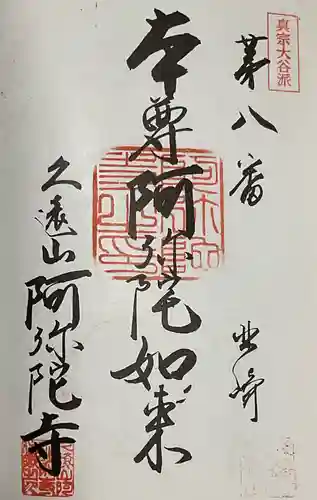 真宗大谷派
第八番
本尊阿弥陀如来
久遠山阿弥陀寺